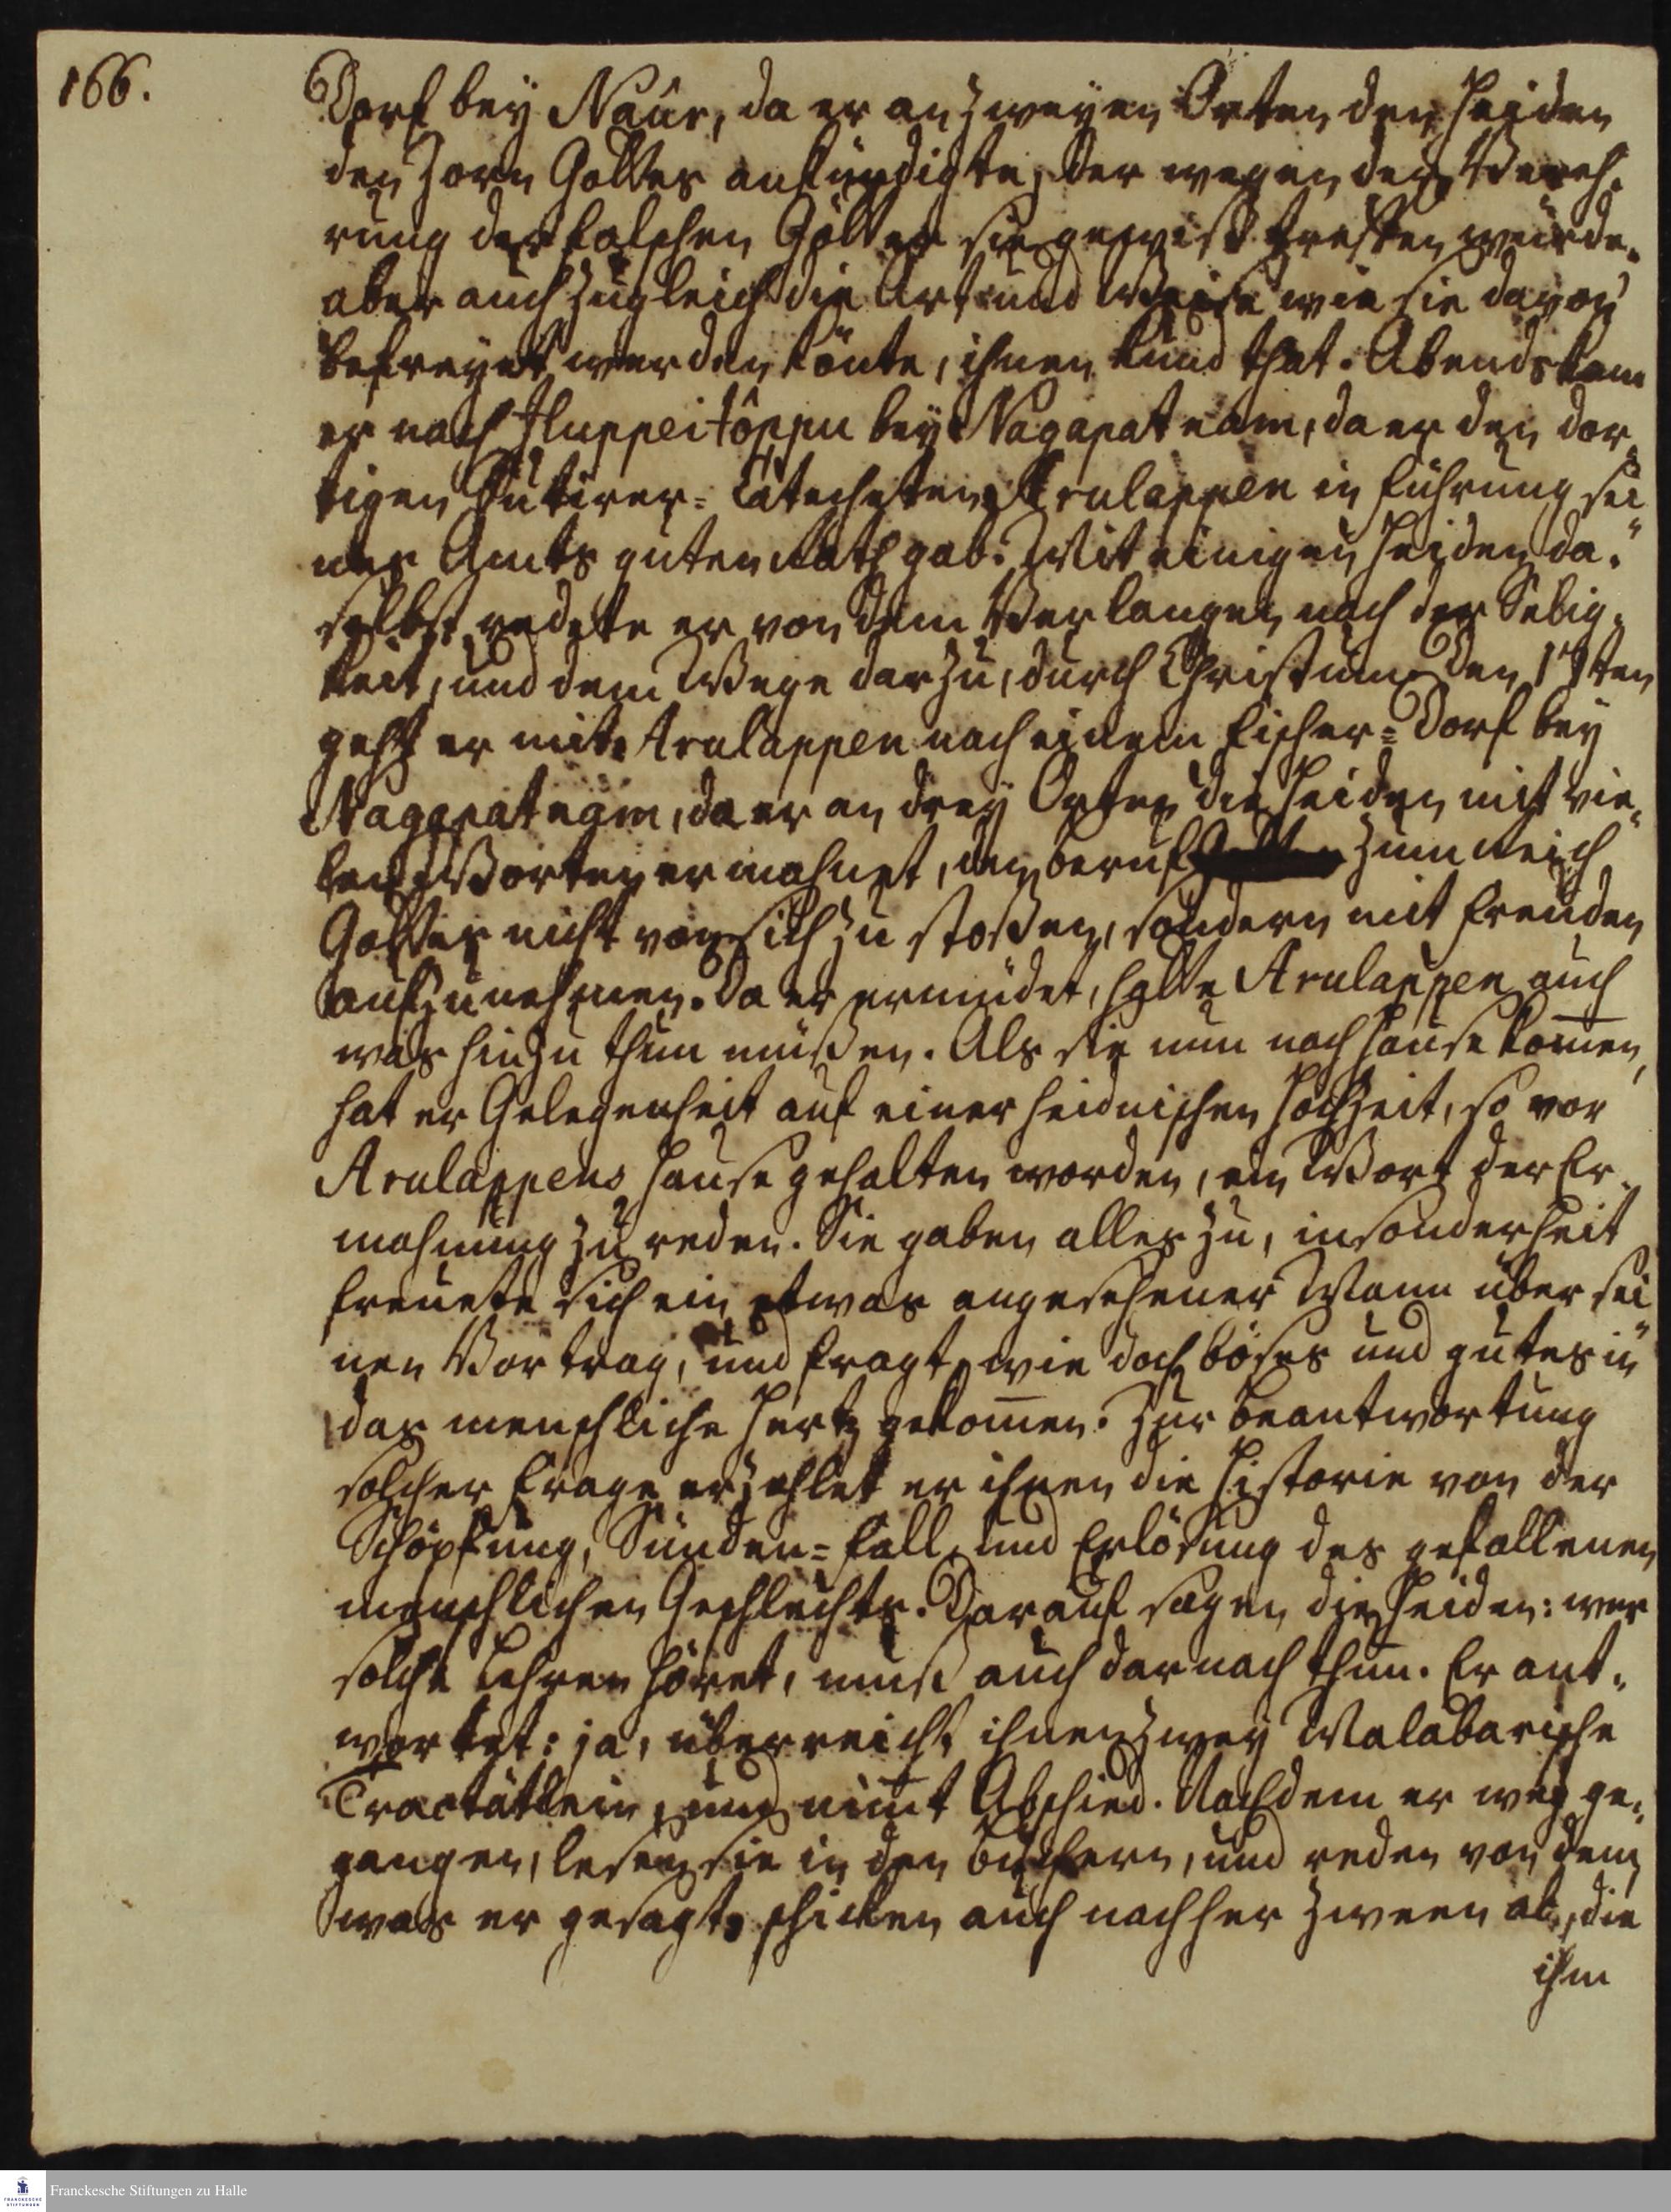 166.
Dorf bey Naûr, da er an zweyen Orten den Heiden
den Zorn Gottes ankündigte, der wegen der Vereh-
rung der falschen Götter sie gewiß treffen würde.
aber auch zugleich die Art und Weise wie sie davon
befreyet werden könte, ihnen kund that. Abends kam
er nach Iluppeitôppu bey Nagapatnam, da er den dor-
tigen Catecheten Arulappen in führung sei-
nes Amts guten Rath gab. Mit einigen Heiden da-
selbst redete er von dem Verlangen nach der Selig-
keit, und dem Wege darzu, durch Christum. Den 17ten
geht er mit Arulappen nach einem fischer=Dorf bey
Nagapatnam, da er an drey Orten die Heiden mit vie-
len Worten ermahnet, den beruf zum Reich
Gottes nicht von sich zu stoßen, sondern mit freuden
aufzunehmen. Da er ermüdet, hatte Arulappen auch
was hinzu thun müßen. Als sie nun nach Hause kom̅en,
hat er Gelegenheit auf einer heidnischen Hochzeit, so vor
Arulappens Hause gehalten worden, ein Wort der Er-
mahnung zu reden. Sie gaben alles zu, insonderheit
freuete sich ein etwas angesehener Mann über sei-
nen Vortrag, und fragt, wie doch böses und gutes in
das menschliche Hertz gekom̅en. Zur beantwortung
solcher frage erzehlet er ihnen die Historie von der
Schöpfung, Sünden=fall, und Erlösung des gefallenen
menschlichen Geschlechts. Darauf sagen die Heiden: wer
solche Lehren höret, muß auch darnach thun. Er ant-
wortet: ja, überreicht ihnen zwey Malabarische
Tractätlein, und nim̅t Abschied. Nachdem er weg ge-
gangen, lesen sie in den büchern, und reden von dem,
was er gesagt, schicken auch nachher zween ab, die
ihm
Franckesche Stiftungen zu Halle
FRANCKESCHE
STIFTUNGEN